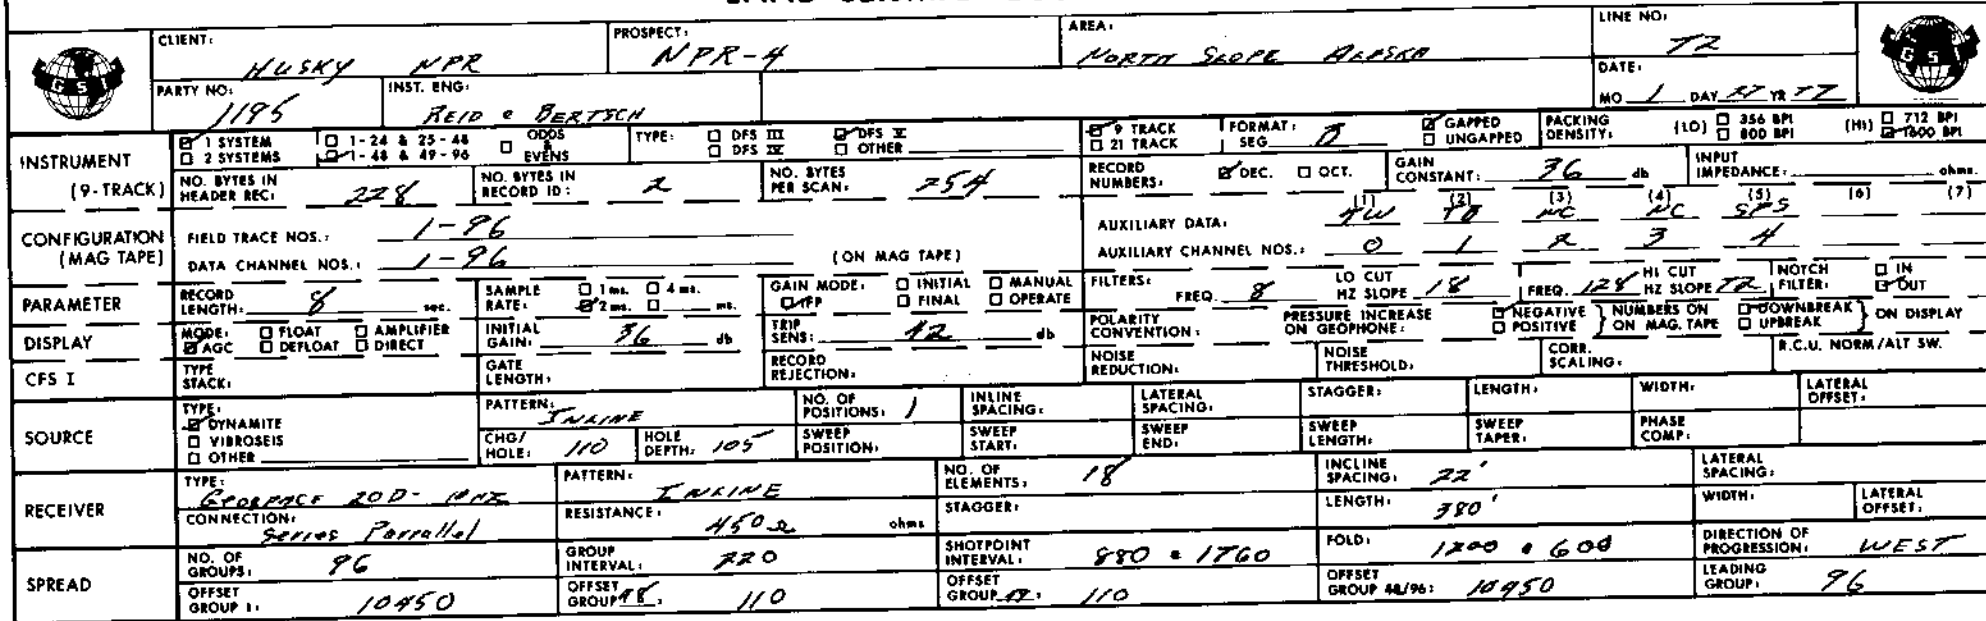 CLIENT: HUSKY NPR PROSPECT: NPR-4 AREA: NORTH SLOPE ALASKA LINE NO: 72
GSI PARTY NO: 1195 INST. ENG: REID & BERTSCH DATE: MO 1 DAY 27 YR 77 GSI
INSTRUMENT (9-TRACK) 1 SYSTEM 2 SYSTEMS 1-24 & 25-48 1-48 & 49-96 ODDS & EVENS TYPE: DFS III DFS IV DFS V OTHER 9 TRACK 21 TRACK FORMAT: SEG B GAPPED UNGAPPED PACKING DENSITY: (LO) 356 BPI 800 BPI (HI) 712 BPI 1600 BPI
NO. BYTES IN HEADER REC: 228 NO. BYTES IN RECORD ID: 2 NO. BYTES PER SCAN: 254 RECORD NUMBERS: DEC. OCT. GAIN CONSTANT: 36 db INPUT IMPEDANCE: ohms.
CONFIGURATION (MAG TAPE) FIELD TRACE NOS.: 1-96 AUXILIARY DATA: (1) TW (2) TB (3) NC (4) NC (5) SPS (6) (7)
DATA CHANNEL NOS.: 1-96 (ON MAG TAPE) AUXILIARY CHANNEL NOS.: 0 1 2 3 4
PARAMETER RECORD LENGTH: 8 sec. SAMPLE RATE: 1 ms. 4 ms. 2 ms. ms. GAIN MODE: IFP INITIAL FINAL MANUAL OPERATE FILTERS: LO CUT FREQ. 8 HZ SLOPE 18 HI CUT FREQ. 128 HZ SLOPE 72 NOTCH FILTER: IN OUT
DISPLAY MODE: AGC FLOAT DEFLOAT AMPLIFIER DIRECT INITIAL GAIN: 36 db TRIP SENS: 42 db POLARITY CONVENTION: PRESSURE INCREASE ON GEOPHONE: NEGATIVE POSITIVE NUMBERS ON ON MAG. TAPE DOWNBREAK UPBREAK ON DISPLAY
CFS I TYPE STACK: GATE LENGTH: RECORD REJECTION: NOISE REDUCTION: NOISE THRESHOLD: CORR. SCALING: R.C.U. NORM/ALT SW.
SOURCE TYPE: DYNAMITE VIBROSEIS OTHER PATTERN: INLINE NO. OF POSITIONS: 1 INLINE SPACING: LATERAL SPACING: STAGGER: LENGTH: WIDTH: LATERAL OFFSET:
CHG/HOLE: 110 HOLE DEPTH: 105 SWEEP POSITION: SWEEP START: SWEEP END: SWEEP LENGTH: SWEEP TAPER: PHASE COMP:
RECEIVER TYPE: GEOSPACE 20D-10HZ PATTERN: INLINE NO. OF ELEMENTS: 18 INCLINE SPACING: 22' LATERAL SPACING:
CONNECTION: Series Parrallel RESISTANCE: 450Ω ohms STAGGER: LENGTH: 380' WIDTH: LATERAL OFFSET:
SPREAD NO. OF GROUPS: 96 GROUP INTERVAL: 220 SHOTPOINT INTERVAL: 880 & 1760 FOLD: 1200 & 600 DIRECTION OF PROGRESSION: WEST
OFFSET GROUP 1: 10450 OFFSET GROUP 48: 110 OFFSET GROUP 49: 110 OFFSET GROUP 48/96: 10450 LEADING GROUP: 96